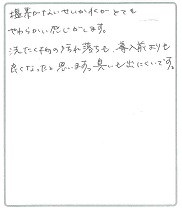 塩素がないせいかれがとても
やわらかい感じがします。
洗たく物の汚れ落ちも、導入前よりも
良くなったと思います。臭いも出にくいです。